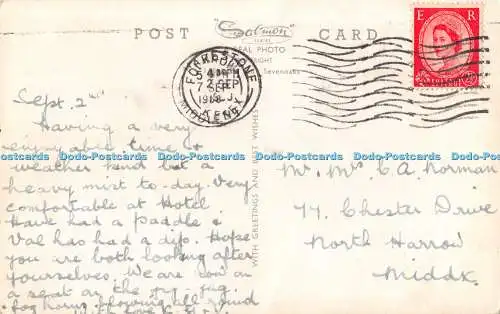 POST "Salmon" CARD
SERIES
REAL PHOTO
Sevenoaks
E R
FOLKESTONE
KENT
Sept. 2nd
Having a very
enjoyable time &
weather kind but a
heavy mist to-day. Very
comfortable at Hotel
Have had a paddle &
Val has had a dip. Hope
you are both looking after
yourselves. We are now on
a seat on the
fog horns blowing all round
With love
WITH GREETINGS AND BEST WISHES
Mr. Mrs C. A. Norman
77 Chester Drive
North Harrow
Middx.
Dodo-Postcards Dodo-Postcards Dodo-Postcards Dodo-Postcards Dodo-Postcards